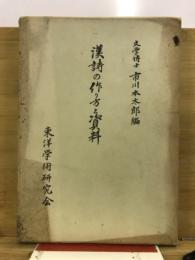 文学博士 市川本太郎編
漢詩の作り方と資料
東洋学術研究会